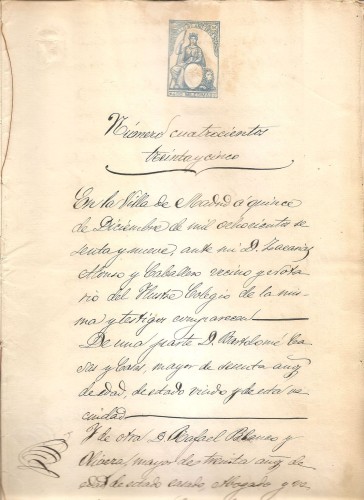 Número cuatrocientos
treinta y cinco
En la Villa de Madrid á quince
de Diciembre de mil ochocientos se
senta y nueve, ante mi D. Zacarias
Alonso y Caballero vecino y nota
rio del Ilustre Colegio de la mis
ma y testigos comparecen
De una parte D. Bartolomé Ca
sas y mayor de sesenta años
de edad, de estado viudo y de esta ve
cindad
Y de otra D. Rafael Blanco y
mayor de treinta años de
edad de estado casado Abogado y ve